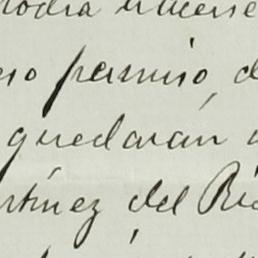 podrá hacerse
eso permiso, d
quedarán
rtínez del Río